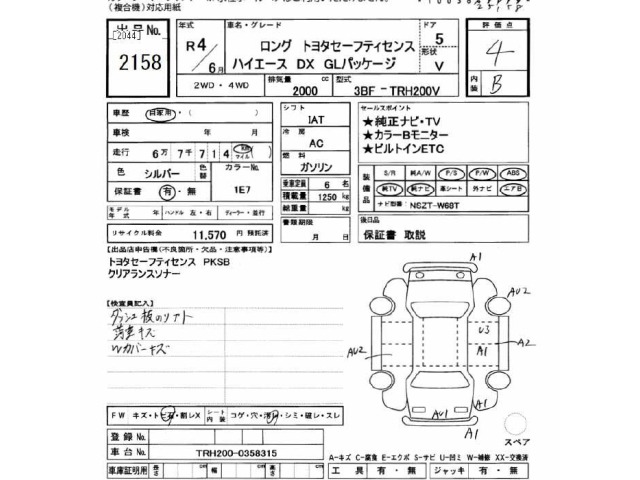 (複合機)対応用紙
出号No.
[2044]
2158
年式
R4/6月
車名・グレード
ロング トヨタセーフティセンス
ハイエース DX GLパッケージ
ドア
5
形状
V
2WD・4WD
排気量
2000 cc
型式
3BF -TRH200V
評価点
4
内装
B
車歴 自家用・( )
車検 年 月
走行 6万7千714 km マイル
色 シルバー 色替 カラーNo. 1E7
保証書 有・無
モデル年式 年 ハンドル 左・右 ディーラー・並行
リサイクル料金 11,570 円 預託済
シフト
IAT
冷房
AC
燃料
ガソリン
乗車定員 6 名
積載量 1250 kg
総重量 kg
書類期限
月 日
セールスポイント
★純正ナビ・TV
★カラーBモニター
★ビルトインETC
装備品
S/R 純A/W P/S P/W ABS
純TV 純ナビ 革シート 外ナビ エアB
ナビ型番: NSZT-W68T
後日品
保証書 取説
【出品店申告欄(不良箇所・欠品・注意事項等)】
トヨタセーフティセンス PKSB
クリアランスソナー
【検査員記入】
ダッシュ板のソト
薄素キズ
Wカバーキズ
A1
AU2
AU2
U3
A1
A2
AU1
AU2
A1
スペア
FW キズ・ト ・割レX シート内装 コゲ・穴・ ・シミ・破レ・スレ
登録No.
車台No. TRH200-0358315
A-キズ C-腐食 E-エクボ S-サビ U-凹ミ W-補修 XX-交換済
車庫証明用 長さ cm 幅 cm 高さ cm
工具 有・無 ジャッキ 有・無